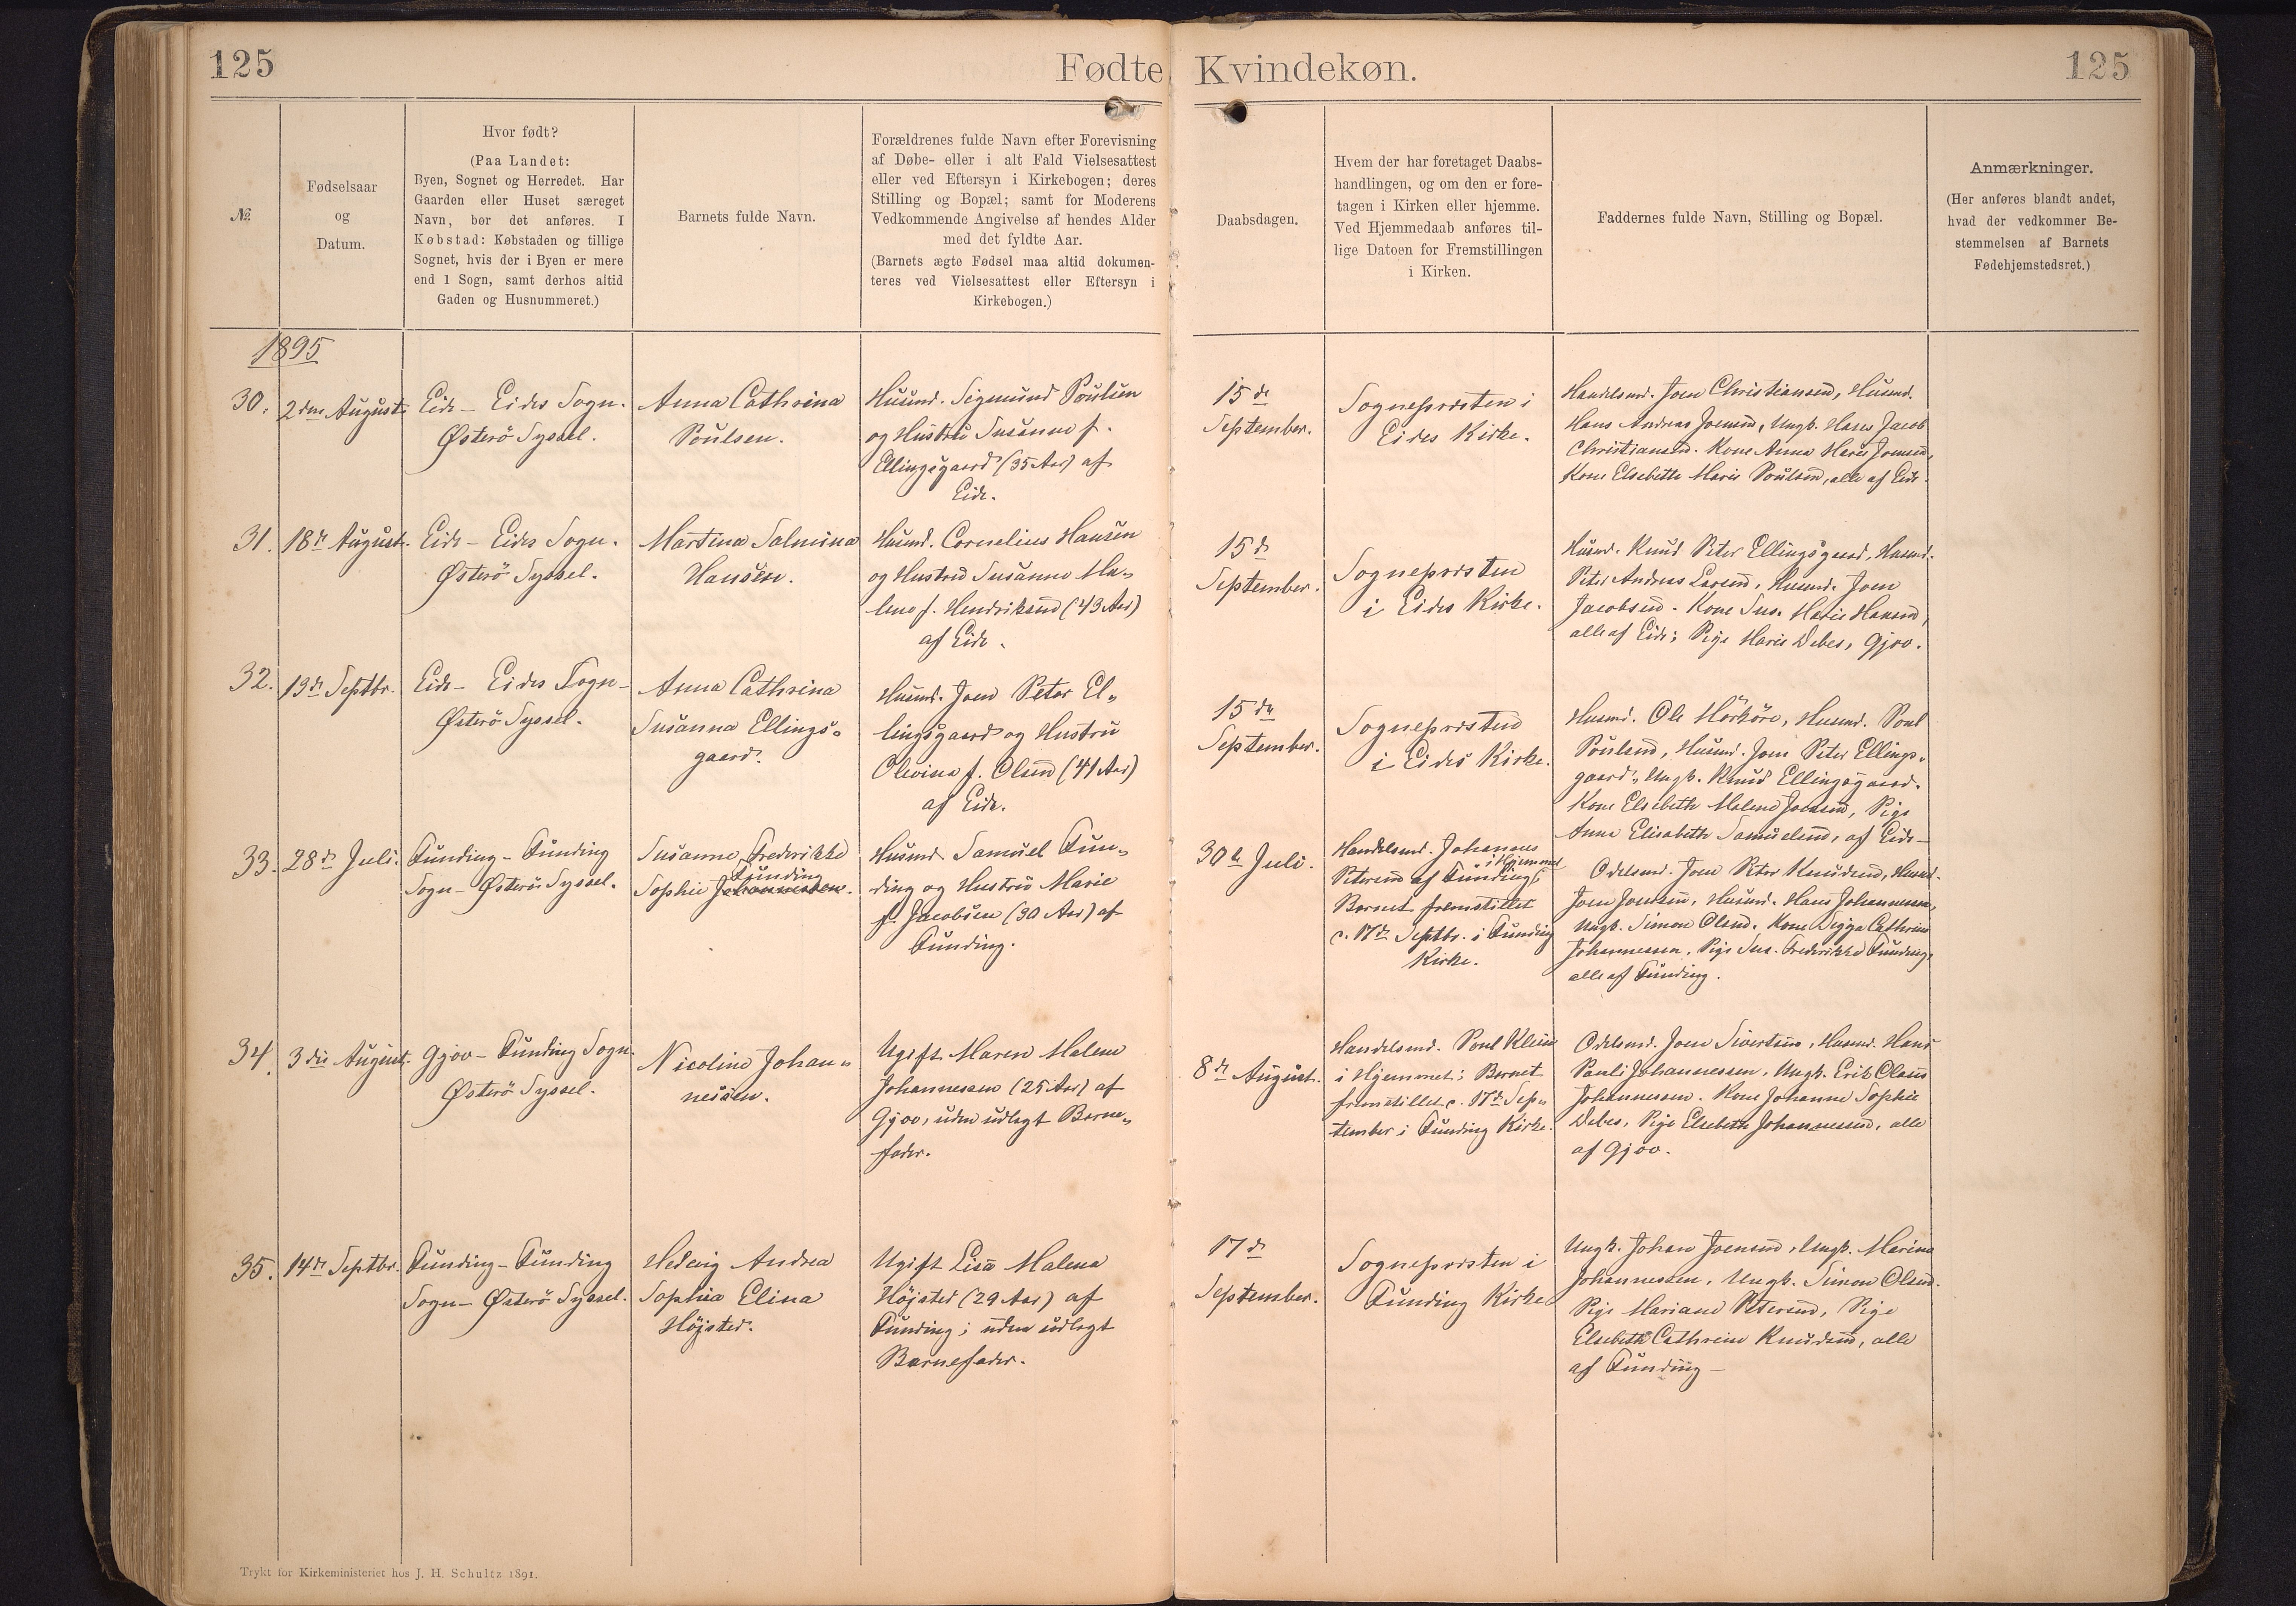 125
Fødte
Kvindekøn.
125
№
Fødselsaar
og
Datum.
Hvor født?
(Paa Landet:
Byen, Sognet og Herredet. Har
Gaarden eller Huset særeget
Navn, bør det anføres. I
Købstad: Købstaden og tillige
Sognet, hvis der i Byen er mere
end 1 Sogn, samt derhos altid
Gaden og Husnummeret.)
Barnets fulde Navn.
Forældrenes fulde Navn efter Forevisning
af Døbe- eller i alt Fald Vielsesattest
eller ved Eftersyn i Kirkebogen; deres
Stilling og Bopæl; samt for Moderens
Vedkommende Angivelse af hendes Alder
med det fyldte Aar.
(Barnets ægte Fødsel maa altid dokumen-
teres ved Vielsesattest eller Eftersyn i
Kirkebogen.)
Daabsdagen.
Hvem der har foretaget Daabs-
handlingen, og om den er fore-
tagen i Kirken eller hjemme.
Ved Hjemmedaab anføres til-
lige Datoen for Fremstillingen
i Kirken.
Faddernes fulde Navn, Stilling og Bopæl.
Anmærkninger.
(Her anføres blandt andet,
hvad der vedkommer Be-
stemmelsen af Barnets
Fødehjemstedsret.)
1895
30.
2den August
Eide - Eides Sogn.
Österö Syssel.
Anna Cathrina
Poulsen.
Husmd. Sigmund Poulsen
og Hustru Susanne f.
Ellingsgaard (35 Aar) af
Eide.
15de
September.
Sognepræsten i
Eides Kirke.
Handelsmd. Joen Christiansen, Husmd.
Hans Andreas Joensen, Ungk. Hans Jacob
Christiansen. Kone Anna Marie Joensen,
Kone Elsebeth Marie Poulsen, alle af Eide.
31.
18de August.
Eide - Eides Sogn.
Österö Syssel.
Martina Salmina
Hansen.
Husmd. Cornelius Hansen
og Hustru Susanne Ma-
lene f. Hendriksen (43 Aar)
af Eide.
15de
September.
Sognepræsten
i Eides Kirke.
Husmd. Knud Peter Ellingsgaard, Husmd.
Peter Andreas Larsen, Husmd. Joen
Jacobsen. Kone Sus. Marie Hansen,
alle af Eide; Pige Maria Debes, Gjov.
32.
13de Septbr.
Eide - Eides Sogn -
Österö Syssel.
Anna Cathrina
Susanna Ellings-
gaard.
Husmd. Joen Peter El-
lingsgaard og Hustru
Olevina f. Olsen (41 Aar)
af Eide.
15de
September.
Sognepræsten
i Eides Kirke.
Husmd. Ole Hörköre, Husmd. Poul
Poulsen, Husmd. Joen Peter Ellings-
gaard, Ungk. Knud Ellingsgaard.
Kone Elsebeth Malene Joensen, Pige
Anne Elisabeth Samuelsen, af Eide -
33.
28de Juli.
Funding - Funding
Sogn - Österö Syssel.
Susanne Frederikke
Funding
Sophie Johannessen.
Husmd. Samuel Fun-
ding og Hustru Marie
f. Jacobsen (30 Aar) af
Funding.
30te Juli.
Handelsmd. Johannes
i Hjemmet
Petersen af Funding;
Barnet fremstillet
c. 17de Septbr. i Funding
Kirke.
Odelsmd. Joen Peter Knudsen, Husmd.
Joen Joensen, Husmd. Hans Johannessen,
Ungk. Simon Olsen. Kone Sigga Cathrine
Johannessen, Pige Sus. Frederikke Funding,
alle af Funding.
34.
3die August.
Gjov - Funding Sogn.
Österö Syssel.
Nicoline Johan-
nessen.
Ugift Maren Malene
Johannessen (25 Aar) af
Gjov, uden udlagt Barne-
fader.
8de August.
Handelsmd. Poul Klein
i Hjemmet; Barnet
fremstillet c. 17de Sep-
tember i Funding Kirke.
Odelsmd. Joen Sivertsen, Husmd. Hans
Pauli Johannessen, Ungk. Erik Olaus
Johannessen. Kone Johanne Sophie
Debes, Pige Elsebeth Johannessen, alle
af Gjov.
35.
14de Septbr.
Funding - Funding
Sogn - Österö Syssel.
Hedvig Andrea
Sophia Elina
Höjsted.
Ugift Lisa Malena
Höjsted (29 Aar) af
Funding; uden udlagt
Barnefader.
17de
September.
Sognepræsten i
Funding Kirke
Ungk. Johan Joensen, Ungk. Marius
Johannessen, Ungk. Simon Olsen.
Pige Mariane Petersen, Pige
Elsebeth Cathrine Knudsen, alle
af Funding -
Trykt for Kirkeministeriet hos J. H. Schultz 1891.